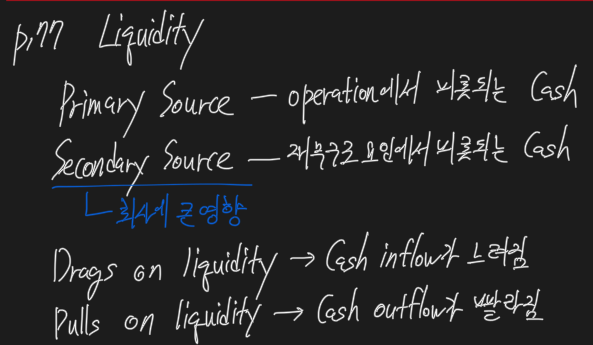 p.77 Liquidity
Primary Source — operation에서 비롯되는 Cash
Secondary Source — 재무구조 요인에서 비롯되는 Cash
회사에 큰 영향
Drags on liquidity → Cash inflow가 느려짐
Pulls on liquidity → Cash outflow가 빨라짐